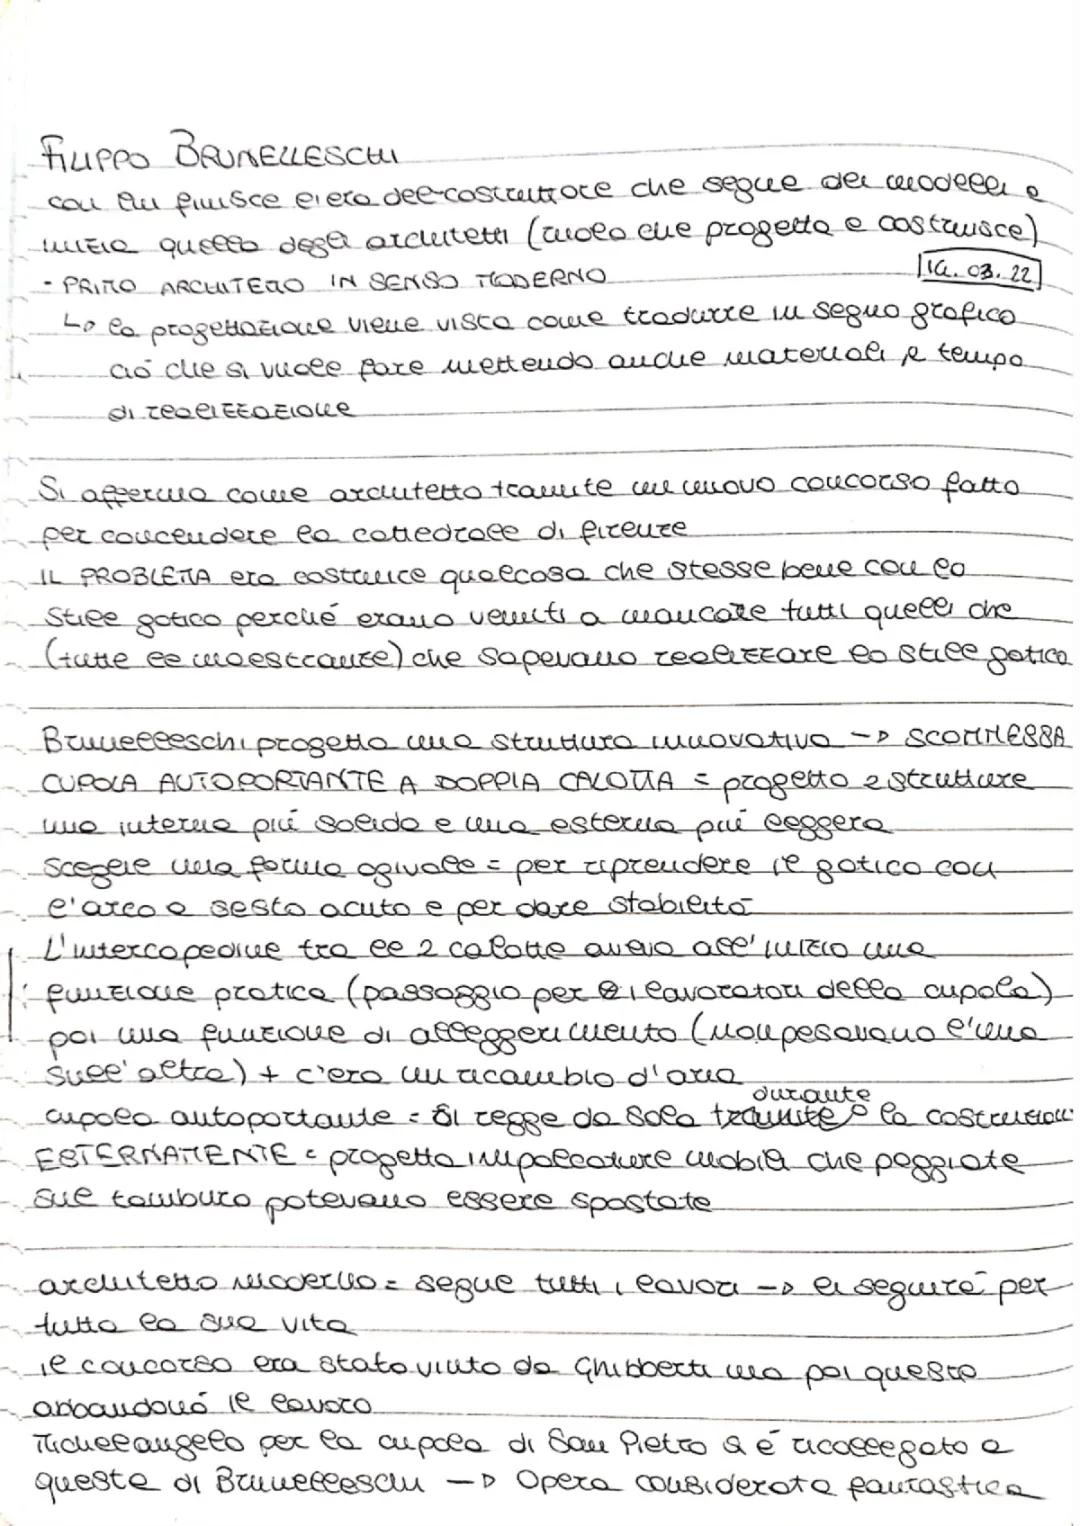 FILIPPO BRUNELLESCHI
con lui finisce l'era del costruttore che segue dei modelli e
inizia quello degli architetti (ruolo che progetta e costruisce)
- PRIMO ARCHITETTO IN SENSO MODERNO
14.03.22
↳ la progettazione viene vista come tradurre in segno grafico
ció che si vuole fare mettendo anche materiali e tempo
di realizzazione
Si afferma come architetto tramite un nuovo concorso fatto
per concludere la cattedrale di firenze
IL PROBLEMA era costruire qualcosa che stesse bene con lo
stile gotico perché erano venuti a mancare tutti quelli che
(tutte le maestranze) che sapevano realizzare lo stile gotico
Brunelleschi progetta una struttura innovativa -> SCOMMESSA
CUPOLA AUTOPORTANTE A DOPPIA CALOTTA = progetta 2 strutture
una interna piú solida e una esterna piú leggera
Sceglie una forma ogivale = per riprendere il gotico con
l'arco a sesto acuto e per dare stabilitá
L'intercapedine tra le 2 calotte aveva all'inizio una
funzione pratica (passaggio per i lavoratori della cupola)
poi una funzione di alleggerimento (non pesavano l'una
sull'altra) + c'era un ricambio d'aria
durante
cupola autoportante = si regge da sola tramite la costruzion
ESTERNAMENTE = progetta impalcature mobili che poggiate
sul tamburo potevano essere spostate
architetto moderno = segue tutti i lavori -> li seguirá per
tutta la sua vita
il concorso era stato vinto da Ghibberti ma poi questo
abbandonó il lavoro
Michelangelo per la cupola di San Pietro si é ricollegato a
questa di Brunelleschi -> Opera considerata fantastica